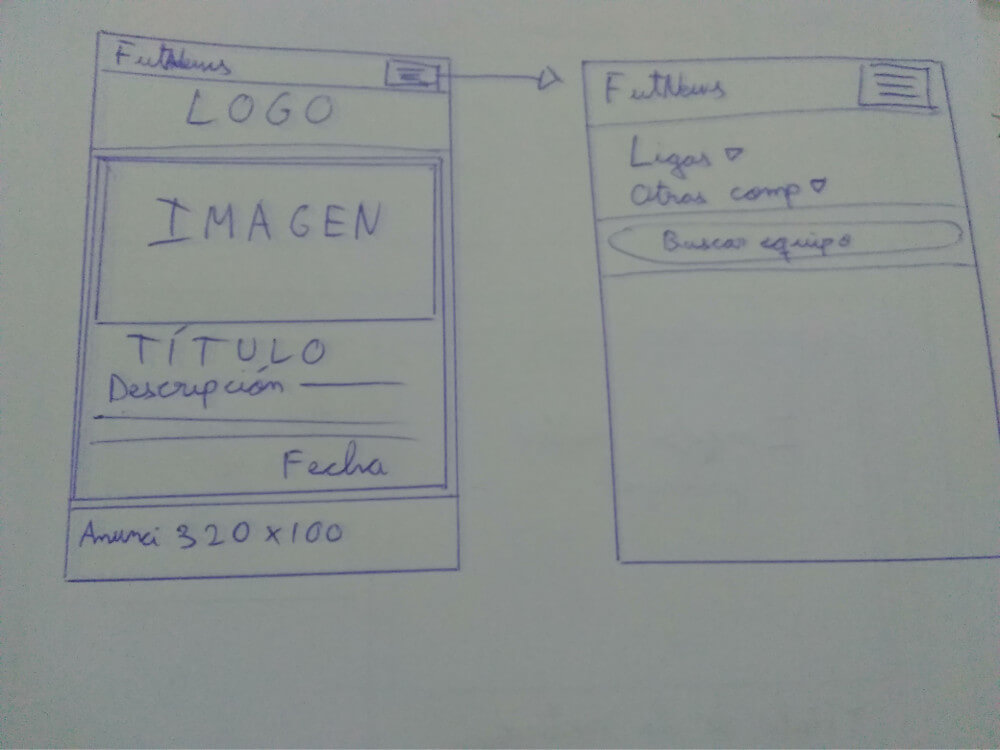 FutNews
LOGO
IMAGEN
TÍTULO
Descripción
Fecha
Anunci 320x100
FutNews
Ligas
Otras comp
Buscar equipo